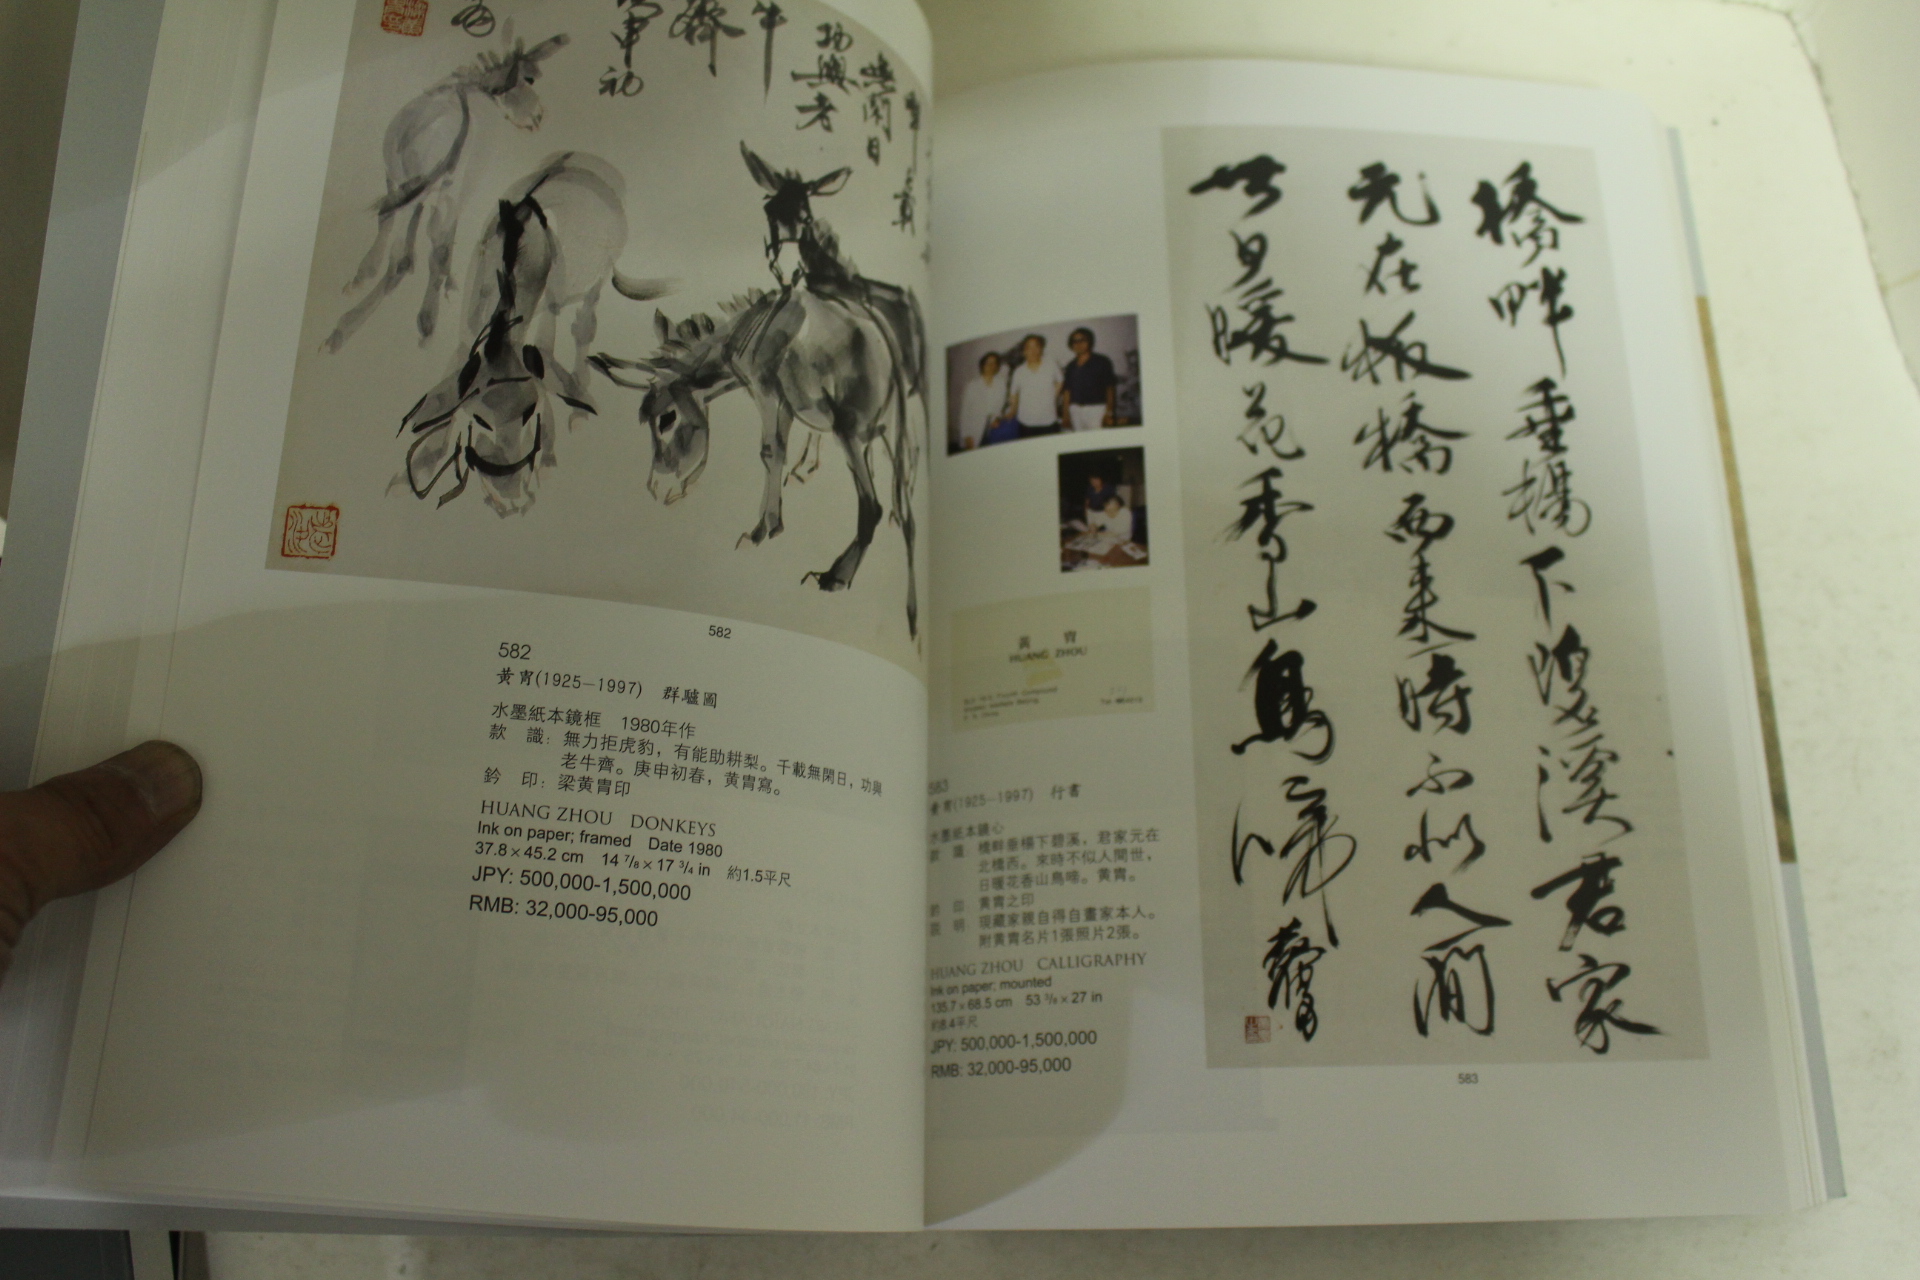 功興老
牛
齊
申初
582
582
黃胄(1925—1997) 群驢圖
水墨紙本鏡框 1980年作
款 識：無力拒虎豹，有能助耕梨。千載無閑日，功興
老牛齊。庚申初春，黄胄寫。
鈐 印：梁黄胄印
HUANG ZHOU DONKEYS
Ink on paper; framed Date 1980
37.8×45.2 cm 14 7/8×17 3/4 in 約1.5平尺
JPY: 500,000-1,500,000
RMB: 32,000-95,000
黃 胄
HUANG ZHOU
583
黃胄(1925—1997) 行書
水墨紙本鏡心
款 識：橋畔垂楊下碧溪，君家元在
北橋西。來時不似人間世，
日暖花香山鳥啼。黄胄。
鈐 印：黄胄之印
説 明：現藏家親自得自畫家本人。
附黄胄名片1張照片2張。
HUANG ZHOU CALLIGRAPHY
Ink on paper; mounted
135.7×68.5 cm 53 3/8×27 in
約8.4平尺
JPY: 500,000-1,500,000
RMB: 32,000-95,000
橋畔垂楊下碧溪君家
元在板橋西来時不似人間
世日暖花香山鳥啼 黄胄
583